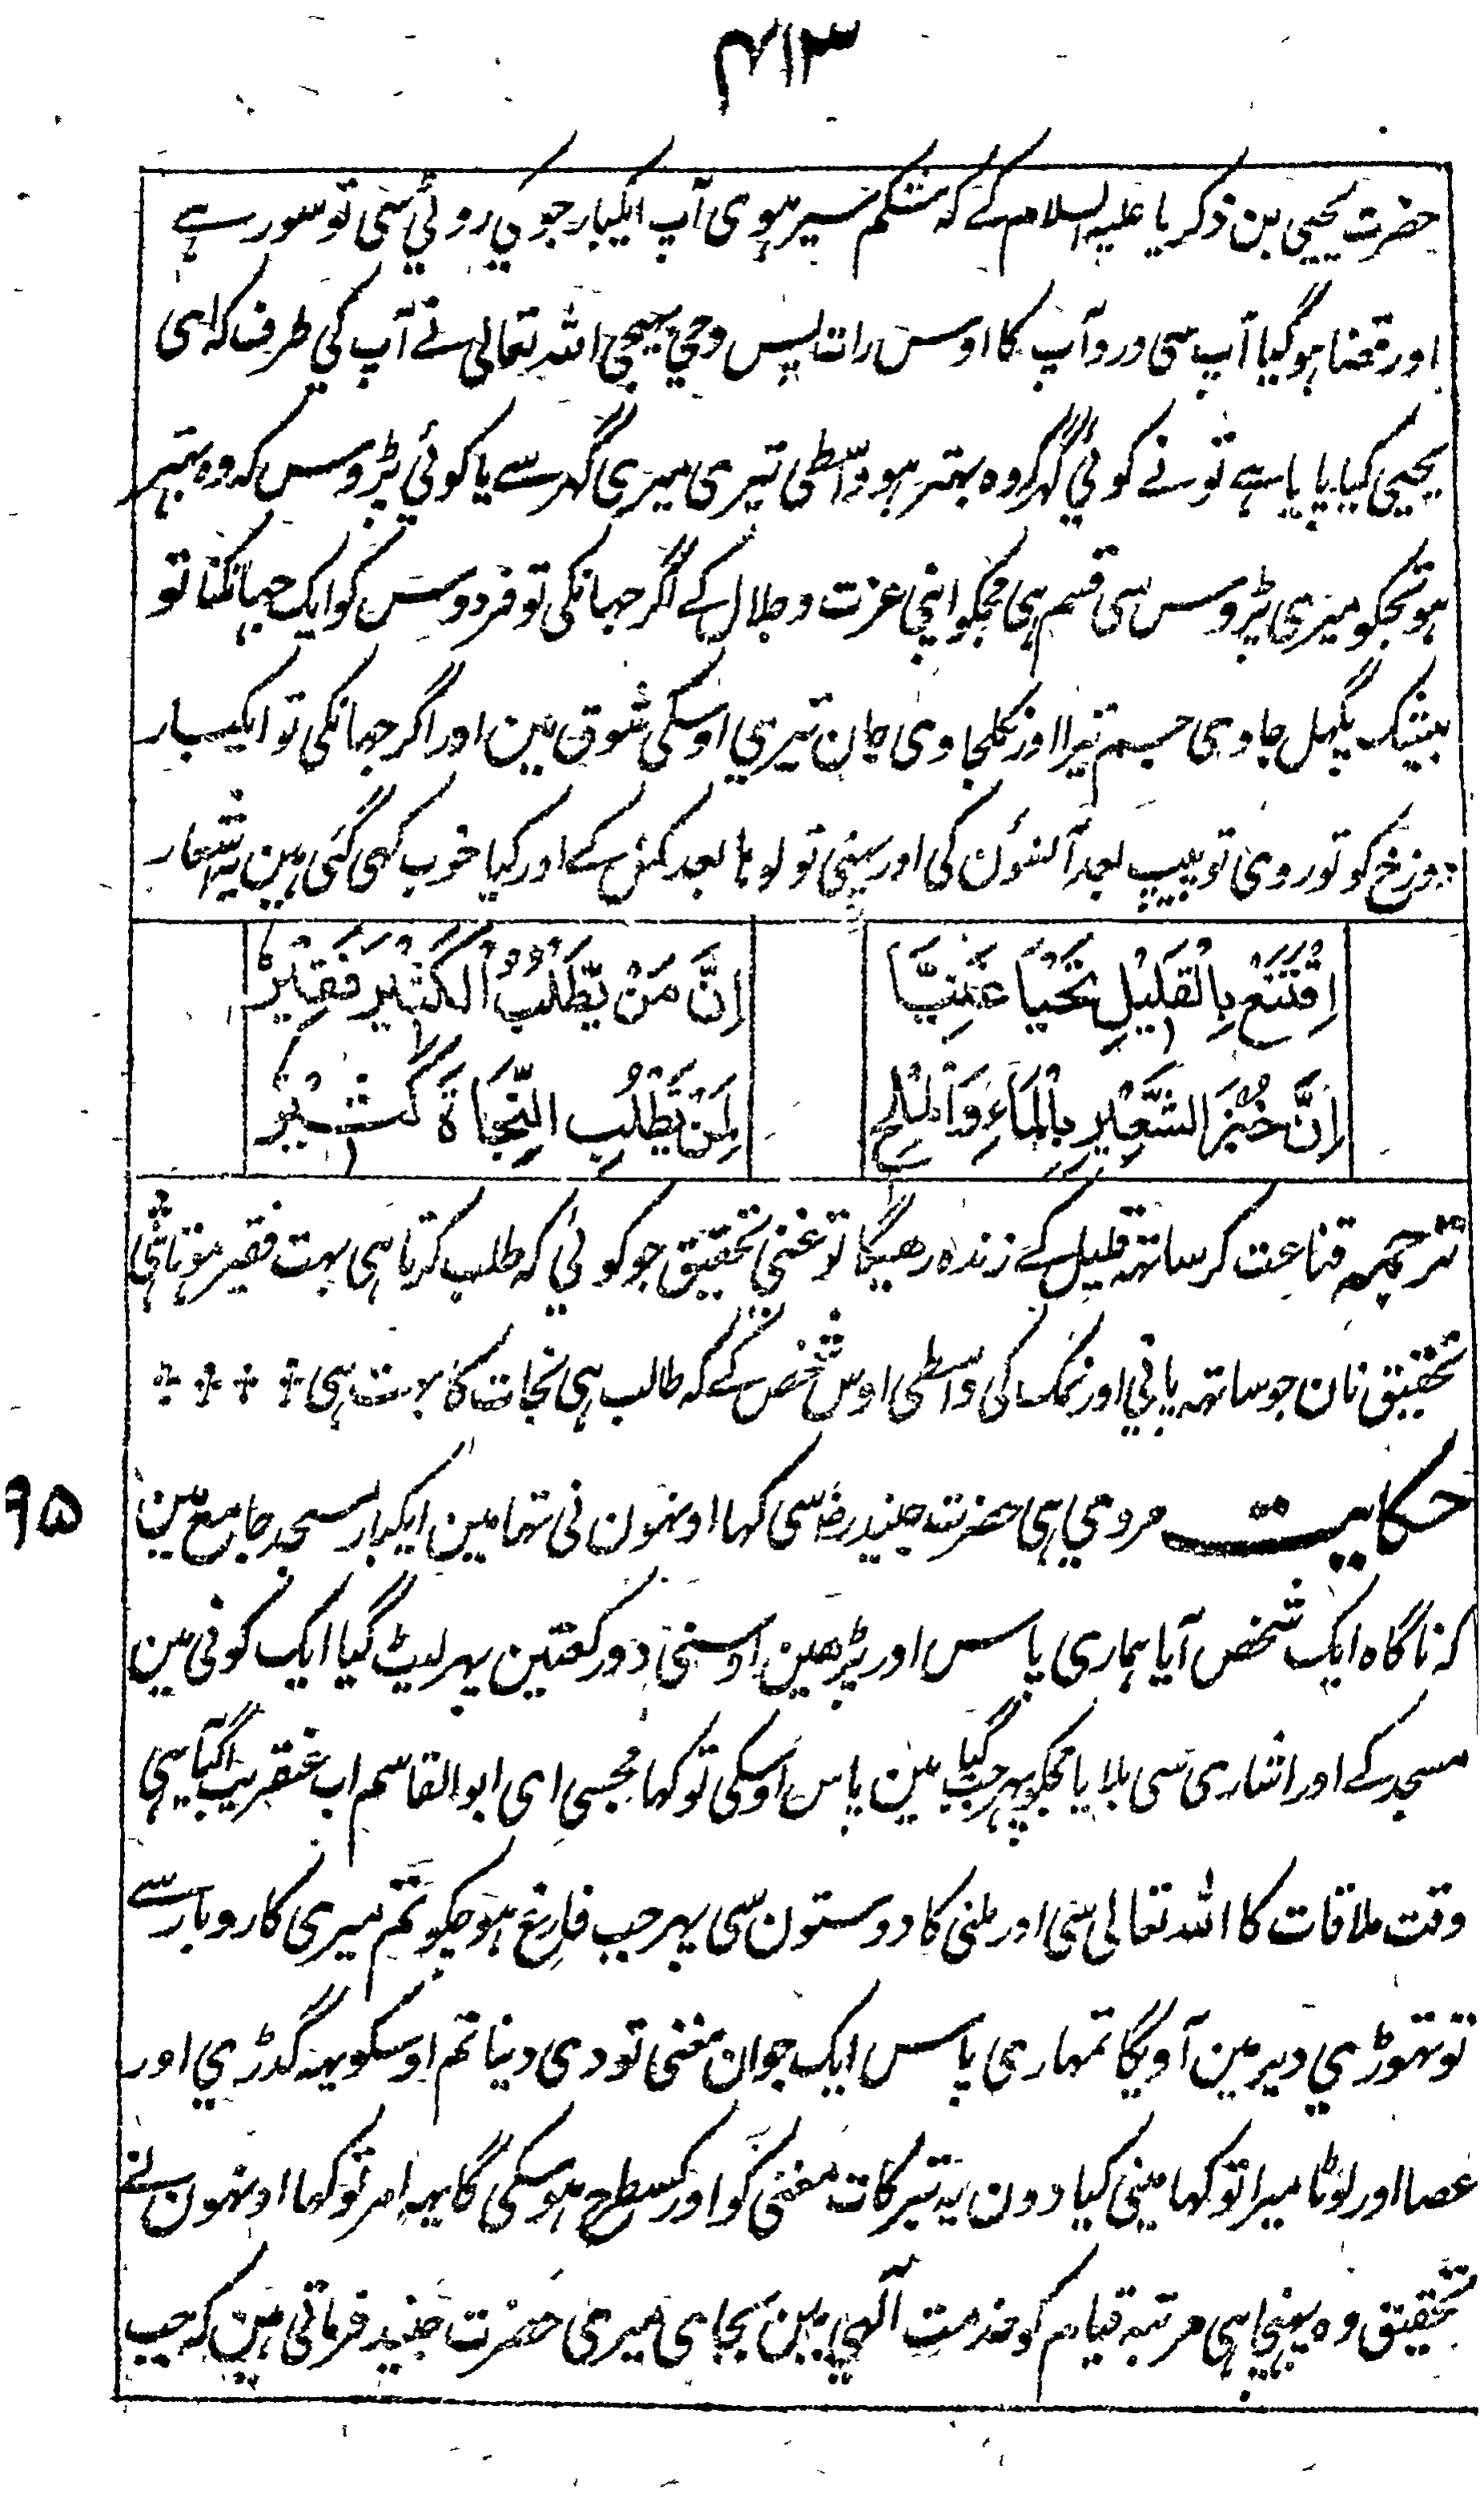 ۴۱۳
حضرت یحیی بن ذکریا علیہ السلام کے کہ شکم سیر ہوی آپ ایکبار جو کی روٹی سی تو سو رہے
اور قضا ہو گیا آپ سی ورد آپ کا اوس رات پس وحی بھیجی اللہ تعالی نے آپ کی طرف کہ ای
یحیی کیا پایا ہے تو نے کوئی گہر کہ وہ بہتر ہو واسطی تیری میری گہر سے یا کوئی پڑوس کہ وہ بہتر
ہو تجکو میری پڑوس سی قسم ہی مجکو اپنی عزت و جلال کے اگر جہانکی تو فردوس کو ایک جہانکنا تو
بیشک پگہل جاوی جسم تیرا اور نکلجاوی جان تیری اوسکی شوق مین اور اگر جہانکی تو ایکبار
دوزخ کو تو روی تو پیپ بعد آنسوئن کی اور پہنی تو لوہا بعد کمل کے اور کیا خوب کہی گئی ہین یہ شعار
اِقْتَنِعْ بِالْقَلِیْلِ تَحْیَا غَنِیًّا اِنَّ مَنْ یَّطْلُبُ الْکَثِیْرَ فَقِیْرٌ
اِنَّ خُبْزَ الشَّعِیْرِ بِالْمَاءِ وَالْمِلْحِ لِمَنْ یَّطْلُبِ النِّجَاۃَ کَثِیْرٌ
ترجمہ قناعت کر ساتہہ قلیل کے زندہ رہیگا تو غنی تحقیق جو کوئی کہ طلب کرتا ہی بہت فقیر ہوتا ہی
تحقیق نان جو ساتہہ پانی اور نمک کی واسطی اوس شخص کے کہ طالب ہی نجات کا بہت ہی ÷ ÷ ÷ ÷
حکایت مروی ہی حضرت جنید رض سی کہا اونہون نی تہا مین ایکبار مسجد جامع مین
۹۵
کہ ناگاہ ایک شخص آیا ہماری پاس اور پڑہین اوسنی دو رکعتین پہر لیٹ گیا ایک کونی مین
مسجد کے اور اشاری سی بلایا مجکو پہر جب گیا مین پاس اوسکی تو کہا مجسی ای ابو القاسم اب عنقریب آگیا ہی
وقت ملاقات کا اللہ تعالی سی اور ملنی کا دوستون سی پہر جب فارغ ہو چکو تم میری کاروبار سے
تو تہوڑی دیر مین آویگا تمہاری پاس ایک جوان مغنی تو دی دینا تم اوسکو یہہ گدڑی اور
عصا اور لوٹا میرا تو کہا مینی کیا دون یہ تبرکات مغنی کو اور کسطرح ہو سکی گا یہہ امر تو کہا اونہون نے
تحقیق وہ پہنچا ہی مرتبہ قیام کو خدمت الٰہی مین بجای میری حضرت جنید فرماتی ہین کہ جب